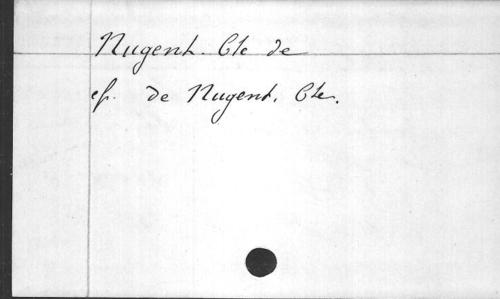 Nugent. Cte de
cf. de Nugent, Cte.